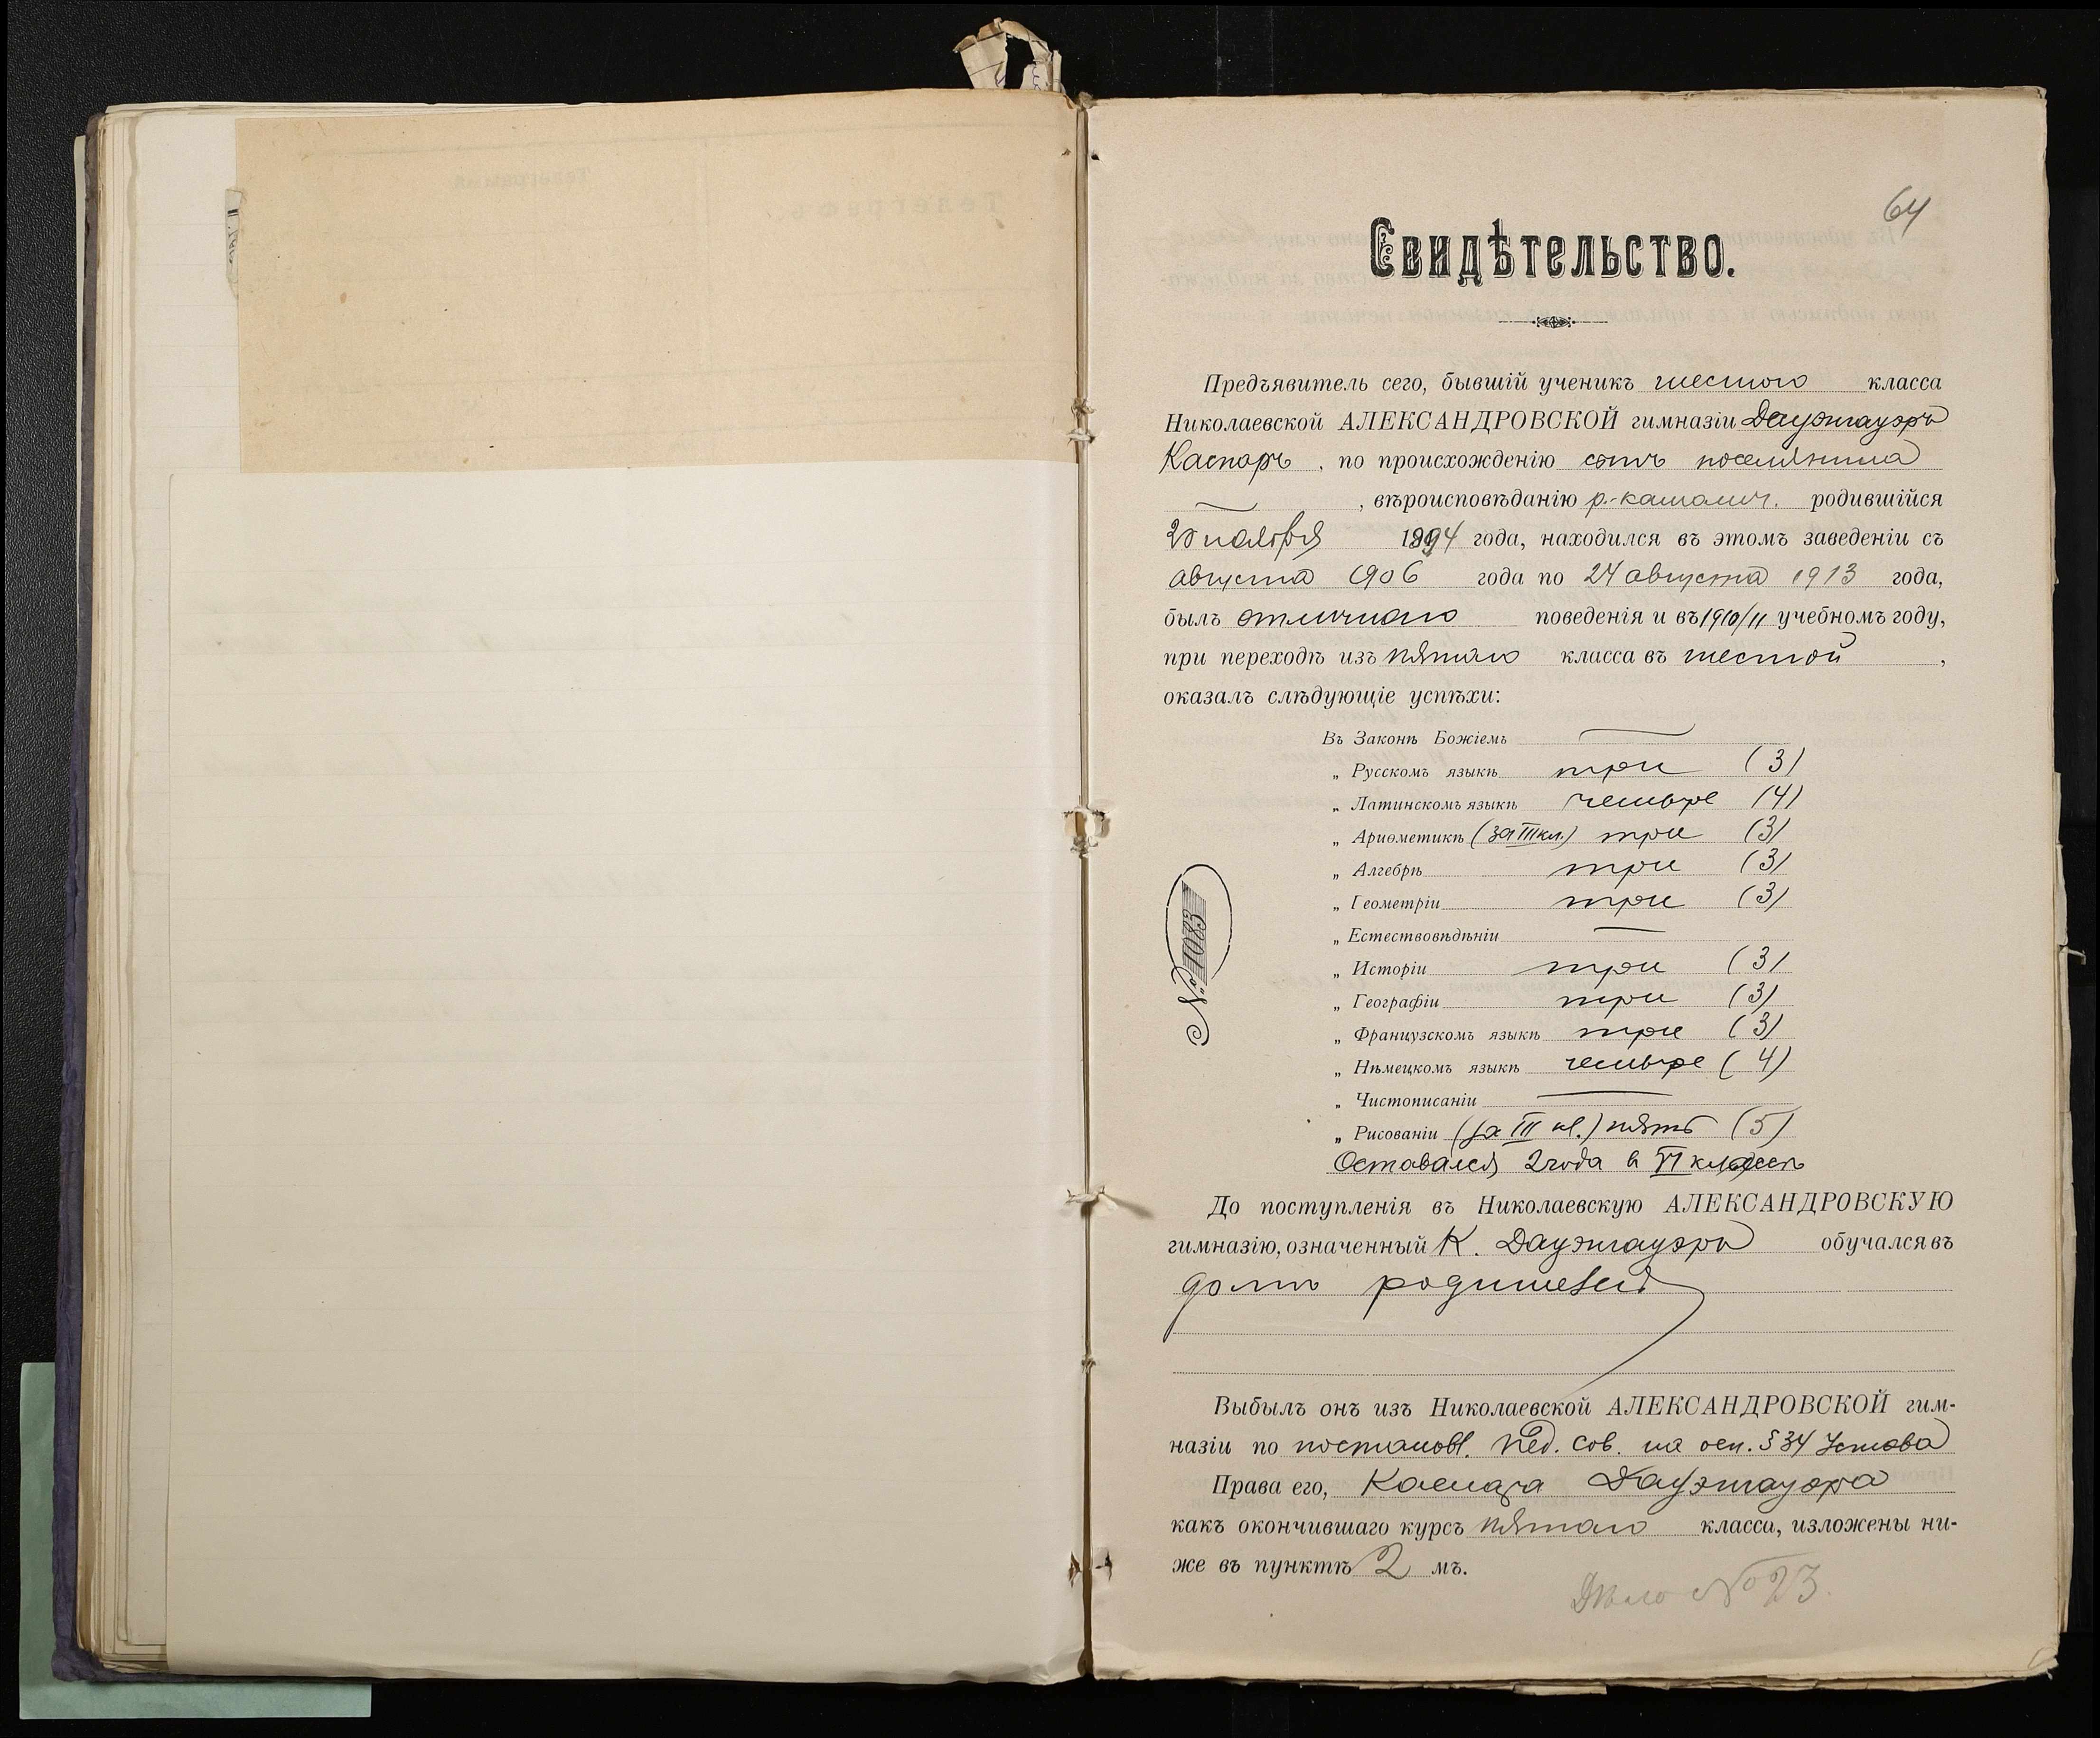 64
Свидѣтельство.
Предъявитель сего, бывшій ученикъ шестого класса
Николаевской АЛЕКСАНДРОВСКОЙ гимназіи Дауэнгауэръ
Каспаръ, по происхожденію сынъ поселянина
, вѣроисповѣданію р.-католич. родившійся
ноября 1894 года, находился въ этомъ заведеніи съ
августа 1906 года по 24 августа 1913 года,
былъ отличнаго поведенія и въ 1910/11 учебномъ году,
при переходѣ изъ пятаго класса въ шестой,
оказалъ слѣдующіе успѣхи:
Въ Законѣ Божіемъ —
„ Русскомъ языкѣ три (3)
„ Латинскомъ языкѣ четыре (4)
„ Ариѳметикѣ (за III кл.) три (3)
„ Алгебрѣ три (3)
„ Геометріи три (3)
„ Естествовѣдѣніи —
„ Исторіи три (3)
„ Географіи три (3)
„ Французскомъ языкѣ три (3)
„ Нѣмецкомъ языкѣ четыре (4)
„ Чистописаніи —
„ Рисованіи (за III кл.) пять (5)
Оставался 2 года в VI классѣ
№ 1083
До поступленія въ Николаевскую АЛЕКСАНДРОВСКУЮ
гимназію, означенный К. Дауэнгауэръ обучался въ
домѣ родителей
Выбылъ онъ изъ Николаевской АЛЕКСАНДРОВСКОЙ гим-
назіи по постановл. Пед. Сов. на осн. § 34 Устава
Права его, Каспара Дауэнгауэра
какъ окончившаго курсъ пятаго класса, изложены ни-
же въ пунктѣ 2 мъ.
Дѣло № 23.